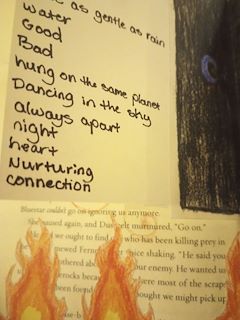 as gentle as rain
water
Good
Bad
hung on the same planet
Dancing in the sky
always apart
night
heart
Nurturing
connection
Bluestar couldn't go on ignoring us anymore.
She paused again, and Dus elt murmured, "Go on."
we ought to find who has been killing prey in
mewed Fern er voice shaking. "He said you
othered abo our enemy. He wanted us
erocks beca were most of the scraps
been foun ought we might pick up